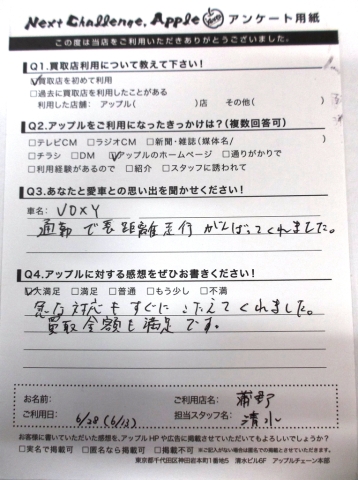 Next Challenge. Apple アンケート用紙
この度は当店をご利用いただきありがとうございました。
Q1.買取店利用について教えて下さい!
☑買取店を初めて利用
□過去に買取店を利用したことがある
利用した店舗: アップル( )店 その他( )
Q2.アップルをご利用になったきっかけは?(複数回答可)
□テレビCM □ラジオCM □新聞・雑誌(媒体名/ )
□チラシ □DM ☑アップルのホームページ □通りがかりで
□利用経験があるので □紹介 □スタッフに誘われて
Q3.あなたと愛車との思い出を聞かせください!
車名: VOXY
通勤で長距離走行がんばってくれました。
Q4.アップルに対する感想をぜひお書きください!
☑大満足 □満足 □普通 □もう少し □不満
急な対応もすぐにこたえてくれました。
買取金額も満足です。
お名前: ご利用店名: 蒲野
ご利用日: 6/28 (6/13) 担当スタッフ名: 清水
お客様に書いていただいた感想を、アップルHPや広告に掲載させていただいてもよろしいでしょうか?
□実名で掲載可 □匿名なら掲載可 □掲載不可 ※ご記入がない場合は匿名での掲載とさせていただきます。
東京都千代田区神田岩本町1番地5 清水ビル6F アップルチェーン本部